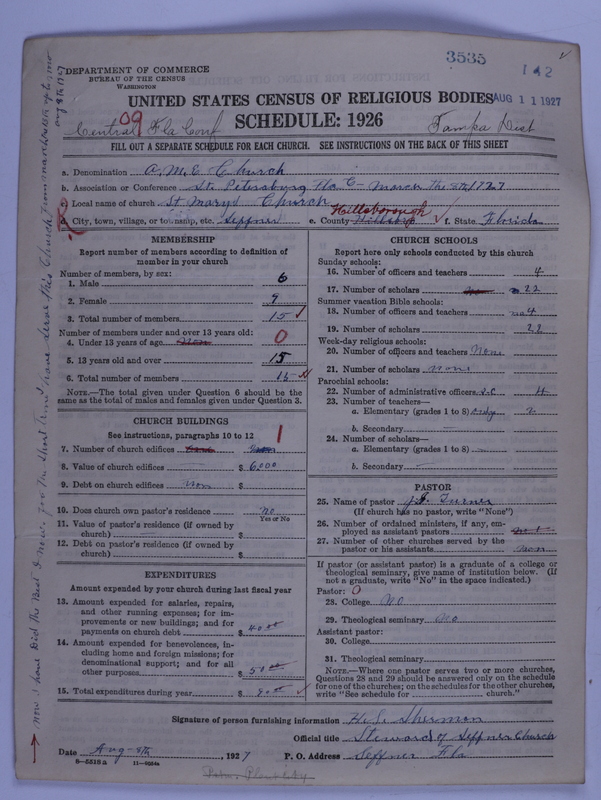 3535
142
DEPARTMENT OF COMMERCE
BUREAU OF THE CENSUS
WASHINGTON
UNITED STATES CENSUS OF RELIGIOUS BODIES
AUG 11 1927
Central Fla Conf
09
SCHEDULE: 1926
Tampa Dist
FILL OUT A SEPARATE SCHEDULE FOR EACH CHURCH. SEE INSTRUCTIONS ON THE BACK OF THIS SHEET
a. Denomination A. M. E Church
b. Association or Conference St. Petersburg Fla C- March the 8th/1927
c. Local name of church St Marys Church
d. City, town, village, or township, etc. Seffner e. County Hillsborough f. State Florida
MEMBERSHIP
Report number of members according to definition of member in your church
Number of members, by sex:
1. Male 6
2. Female 9
3. Total number of members 15
Number of members under and over 13 years old:
4. Under 13 years of age 0
5. 13 years old and over 15
6. Total number of members 15
NOTE.—The total given under Question 6 should be the same as the total of males and females given under Question 3.
CHURCH BUILDINGS
See instructions, paragraphs 10 to 12
7. Number of church edifices 1
8. Value of church edifices $ 6,000
9. Debt on church edifices non $
10. Does church own pastor's residence no
Yes or No
11. Value of pastor's residence (if owned by church) $
12. Debt on pastor's residence (if owned by church) $
EXPENDITURES
Amount expended by your church during last fiscal year
13. Amount expended for salaries, repairs, and other running expenses; for improvements or new buildings; and for payments on church debt $ 40 00
14. Amount expended for benevolences, including home and foreign missions; for denominational support; and for all other purposes $ 50 00
15. Total expenditures during year $ 90 00
CHURCH SCHOOLS
Report here only schools conducted by this church
Sunday schools:
16. Number of officers and teachers 4
17. Number of scholars 22
Summer vacation Bible schools:
18. Number of officers and teachers 4
19. Number of scholars 22
Week-day religious schools:
20. Number of officers and teachers None
21. Number of scholars none
Parochial schools:
22. Number of administrative officers 4
23. Number of teachers—
a. Elementary (grades 1 to 8)
b. Secondary
24. Number of scholars—
a. Elementary (grades 1 to 8)
b. Secondary
PASTOR
25. Name of pastor Turner
(If church has no pastor, write "None")
26. Number of ordained ministers, if any, employed as assistant pastors
27. Number of other churches served by the pastor or his assistants
If pastor (or assistant pastor) is a graduate of a college or theological seminary, give name of institution below. (If not a graduate, write "No" in the space indicated.)
Pastor: 0
28. College No
29. Theological seminary No
Assistant pastor:
30. College
31. Theological seminary
NOTE.—Where one pastor serves two or more churches, Questions 28 and 29 should be answered only on the schedule for one of the churches; on the schedules for the other churches, write "See schedule for church."
Signature of person furnishing information H. S. Sherman
Official title Steward of Seffner Church
Date Aug-8th, 1927 P. O. Address Seffner Fla
8—5518 a